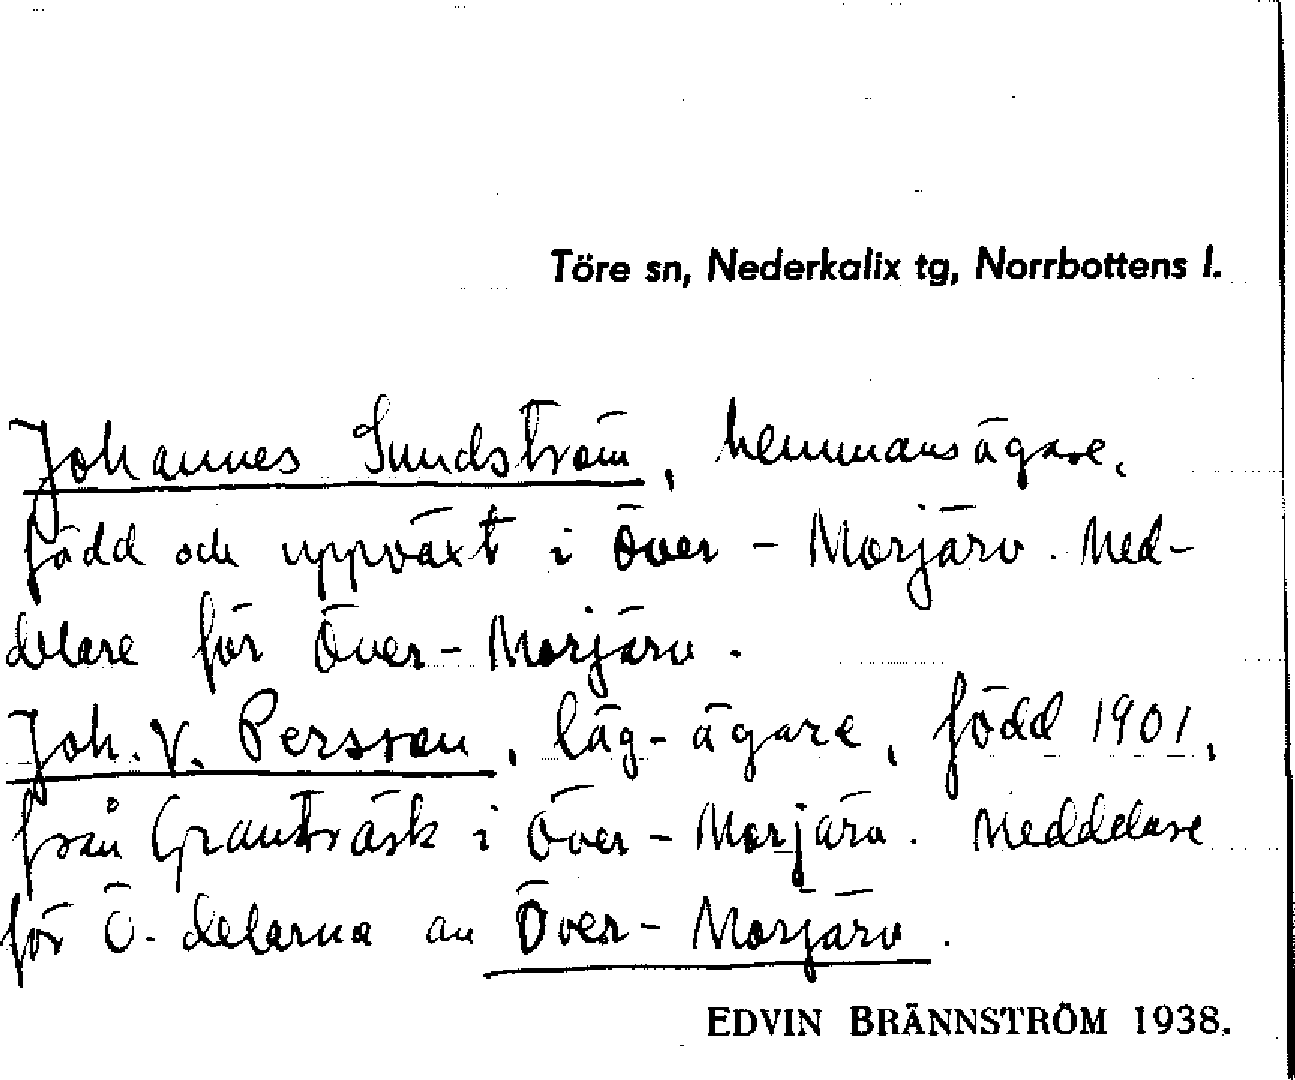 Töre sn, Nederkalix tg, Norrbottens l.
Johannes Sundström, hemmansägare,
född och uppväxt i Över-Morjärv. Med-
delare för Över-Morjärv.
Joh. V. Persson, läg-ägare, född 1901,
från Granträsk i Över-Morjärv. Meddelare
för Ö. delarna av Över-Morjärv.
EDVIN BRÄNNSTRÖM 1938.